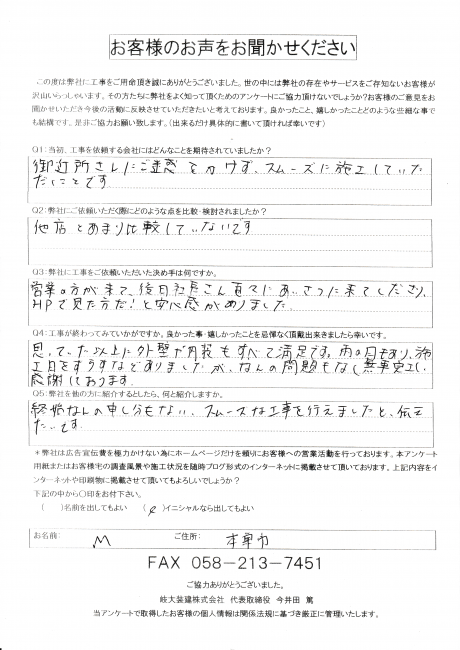 お客様のお声をお聞かせください
この度は弊社に工事をご用命頂き誠にありがとうございました。世の中には弊社の存在やサービスをご存知ないお客様が
沢山いらっしゃいます。その方たちに弊社をよく知って頂くためのアンケートにご協力頂けないでしょうか?お客様のご意見をお
聞かせいただき今後の活動に反映させていただきたいと考えております。良かったこと、嬉しかったことどのような些細な事で
も結構です。是非ご協力お願い致します。(出来るだけ具体的に書いて頂ければ幸いです)
Q1:当初、工事を依頼する会社にはどんなことを期待されていましたか?
御近所さんにご迷惑をかけず、スムーズに施工していた
だくことです
Q2:弊社にご依頼いただく際にどのような点を比較・検討されましたか?
他店とあまり比較していないです
Q3:弊社に工事をご依頼いただいた決め手は何ですか。
営業の方が来て、後日社長さん直々にあいさつに来てくださり、
HPで見た方だ!と安心感がありました
Q4:工事が終わってみていかがですか。良かった事・嬉しかったことを忌憚なく頂戴出来きましたら幸いです。
思っていた以上に外壁や内装もすべて満足です。雨の日もあり、施
工日をずらすなどありましたが、なんの問題もなく無事完工し、
感謝しております。
Q5:弊社を他の方に紹介するとしたら、何と紹介しますか。
終始なんの申し分もない、スムーズな工事を行えましたと、伝え
たいです。
*弊社は広告宣伝費を極力かけない為にホームページだけを頼りにお客様への営業活動を行っております。本アンケート
用紙またはお客様宅の調査風景や施工状況を随時ブログ形式のインターネットに掲載させて頂いております。上記内容をイ
ンターネットや印刷物に掲載させて頂いてもよろしいでしょうか?
下記の中から〇印をお付下さい。
( )名前を出してもよい ( )イニシャルなら出してもよい
お名前: M ご住所: 本巣市
FAX 058-213-7451
ご協力ありがとうございました。
岐大装建株式会社 代表取締役 今井田 篤
当アンケートで取得したお客様の個人情報は関係法規に基づき厳正に管理いたします。